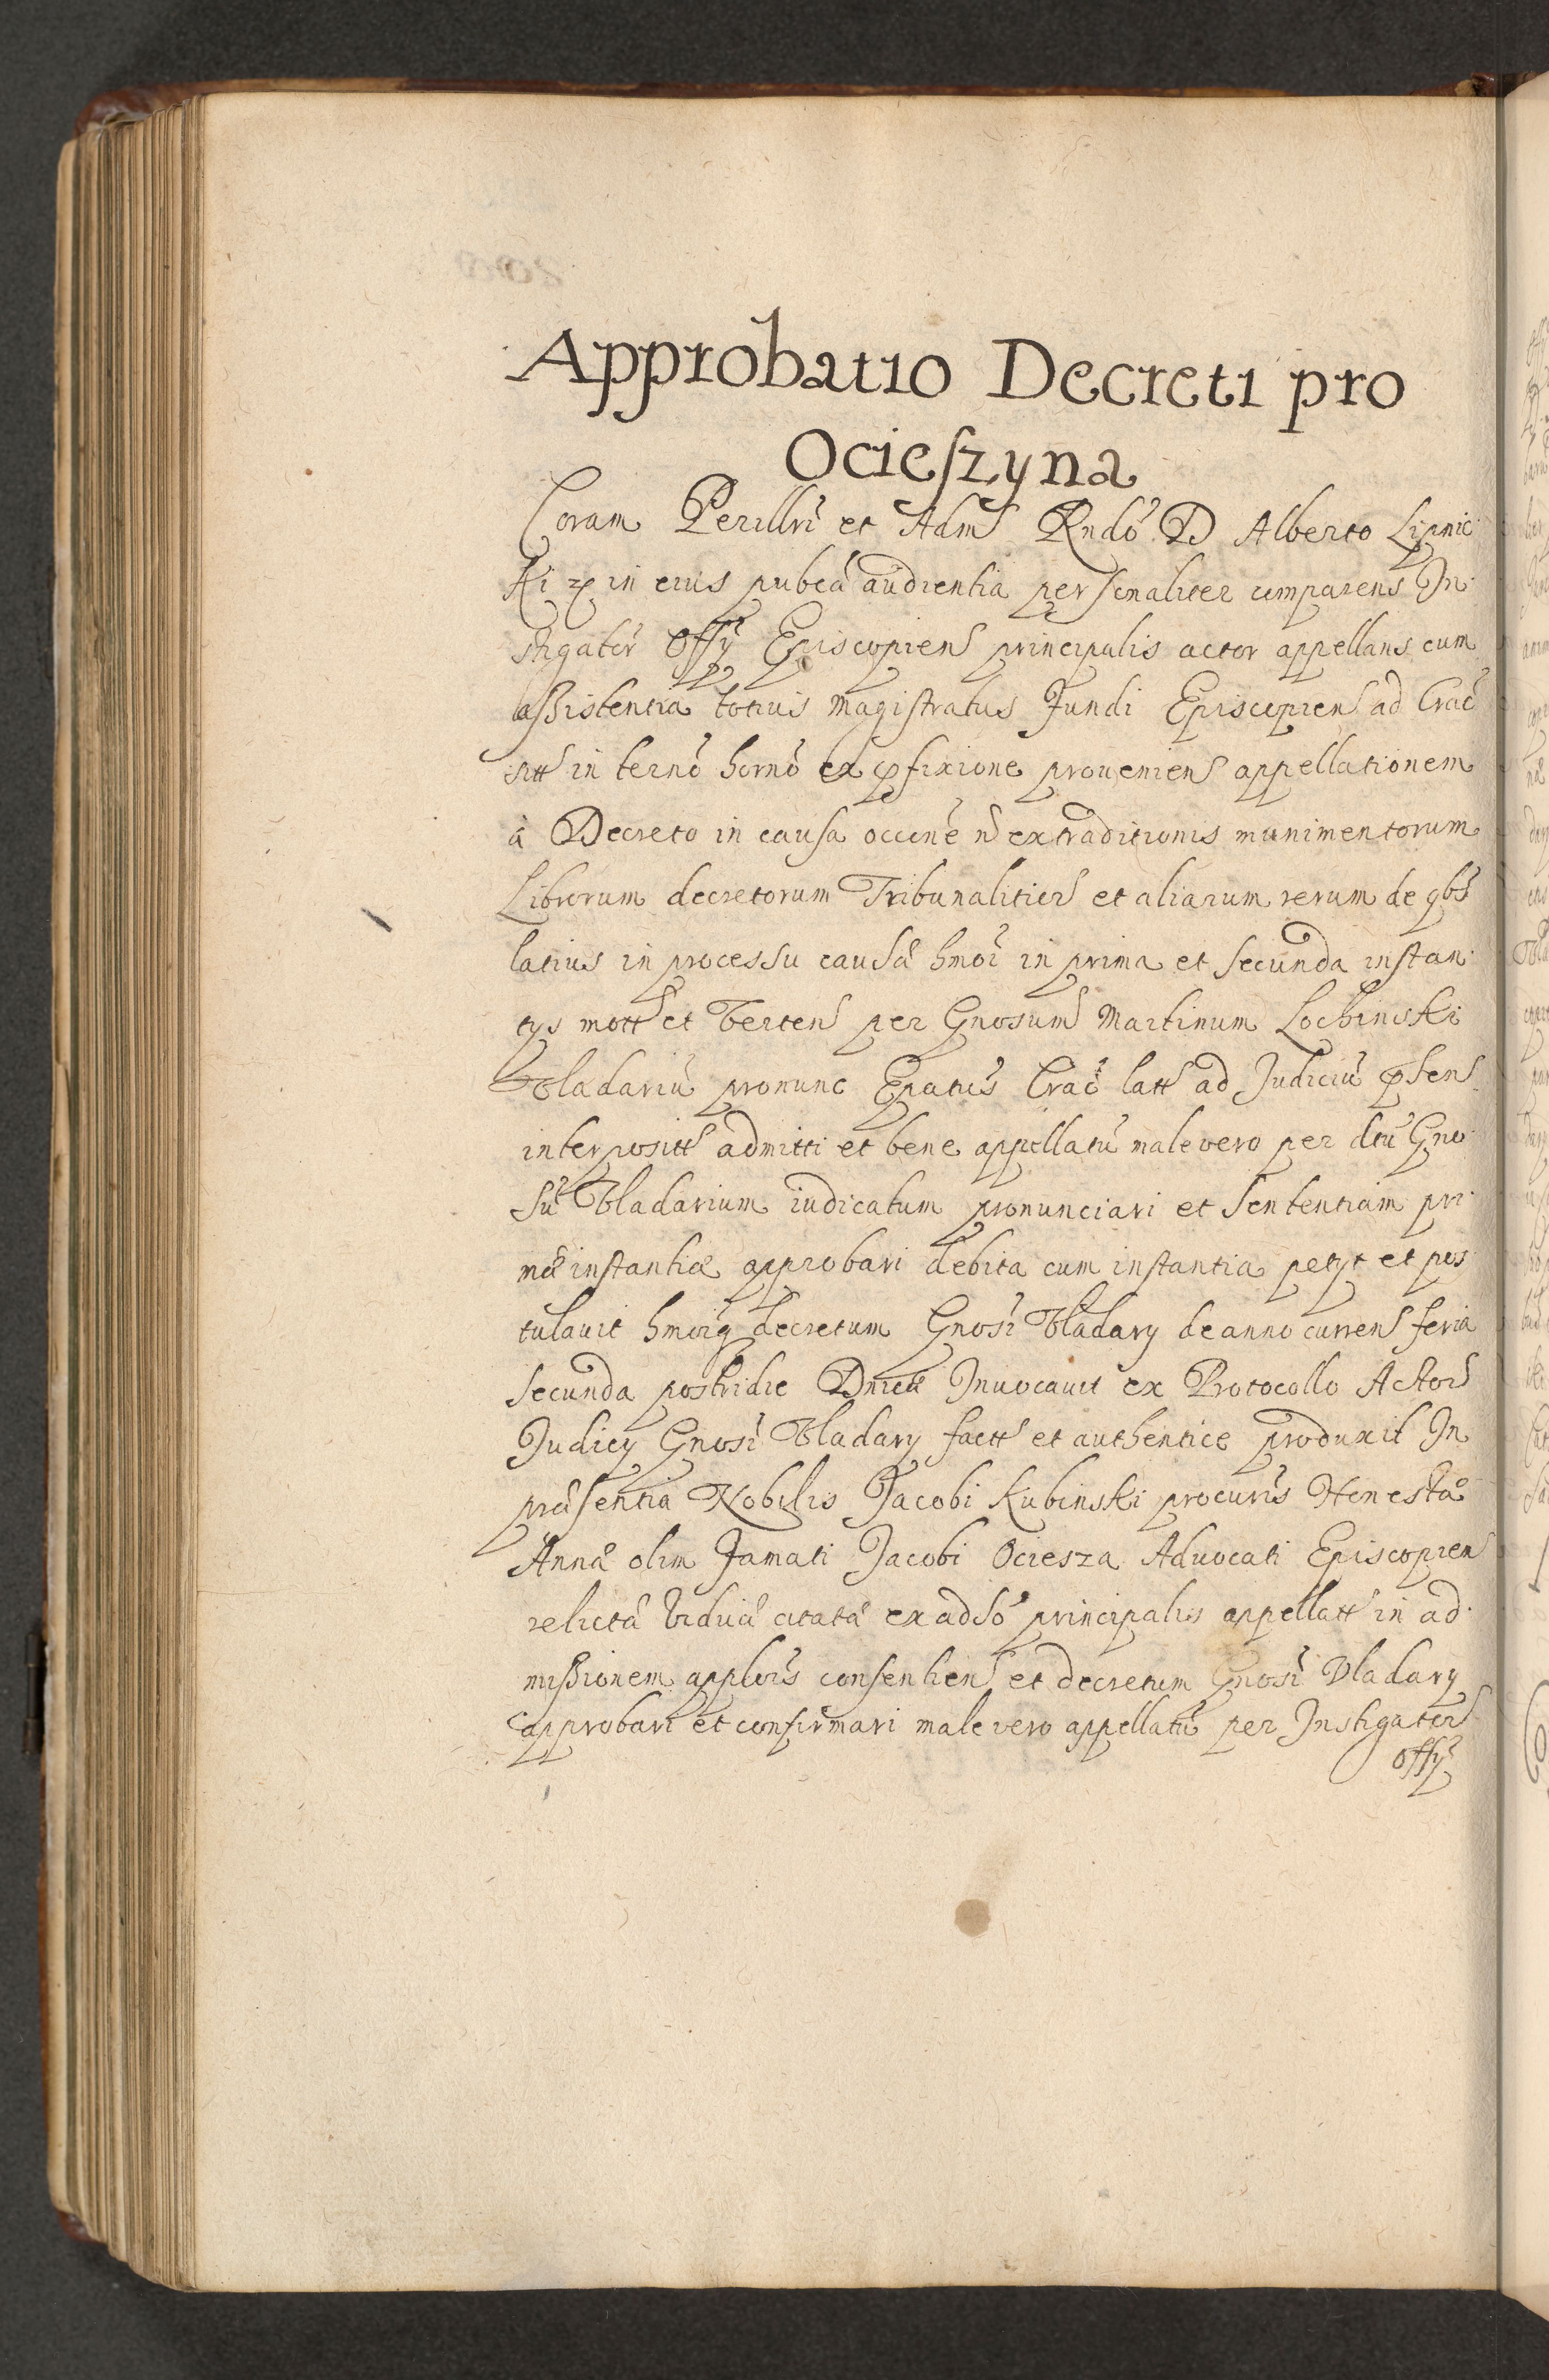 Approbatio Decreti pro
Ocieszyna
Coram Perillri et Adm Rndo D Alberto Lipnic
ki in eius pubca audientia personaliter comparens In
stigator Offy Episcopien principalis actor appellans cum
assistentia totius Magistratus Fundi Episcopien ad Crac
sitt in termo horno ex pfixione prouenien appellationem
à Decreto in causa occone n extraditionis munimentorum
Librorum decretorum Tribunalitior et aliarum rerum de qbs
latius in processu causæ hmoi in prima et secunda instan
tys mott et verten per Gnosum Martinum Lochinski
Vladariu pronunc Epatus Crac latt ad Judiciu psens
interpositt admitti et bene appellatu male vero per dtu Gno
su Vladarium iudicatum pronunciari et sententiam pri
mæ instantiæ approbari debita cum instantia petyt et pos
tulauit hmoiq decretum Gnosi Vladary de anno curren feria
secunda postridie Dnicæ Inuocauit ex Protocollo Actor
Judicy Gnosi Vladary factt et authentice produxit In
præsentia Nobilis Jacobi Kubinski procuris Honestæ
Annæ olim Famati Jacobi Ociesza Aduocati Episcopien
relictæ viduæ citatæ ex adso principalis appellatt in ad
missionem applois consentien et decretum Gnosi Vladary
approbari et confirmari male vero appellatu per Instigator
offy